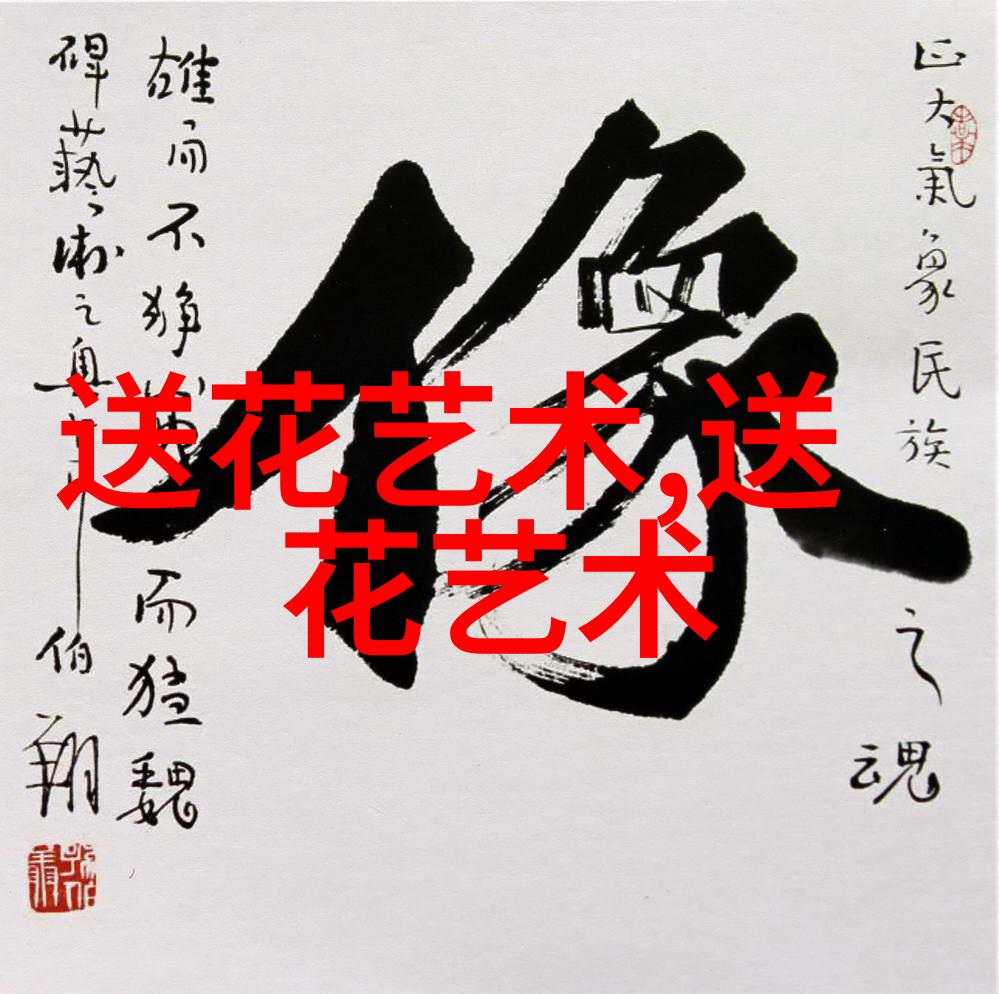 正大气象民族之魂
像
雄而不狰
而猛魏
碑藝术之奥
伯翔
送花艺术,送
花艺术